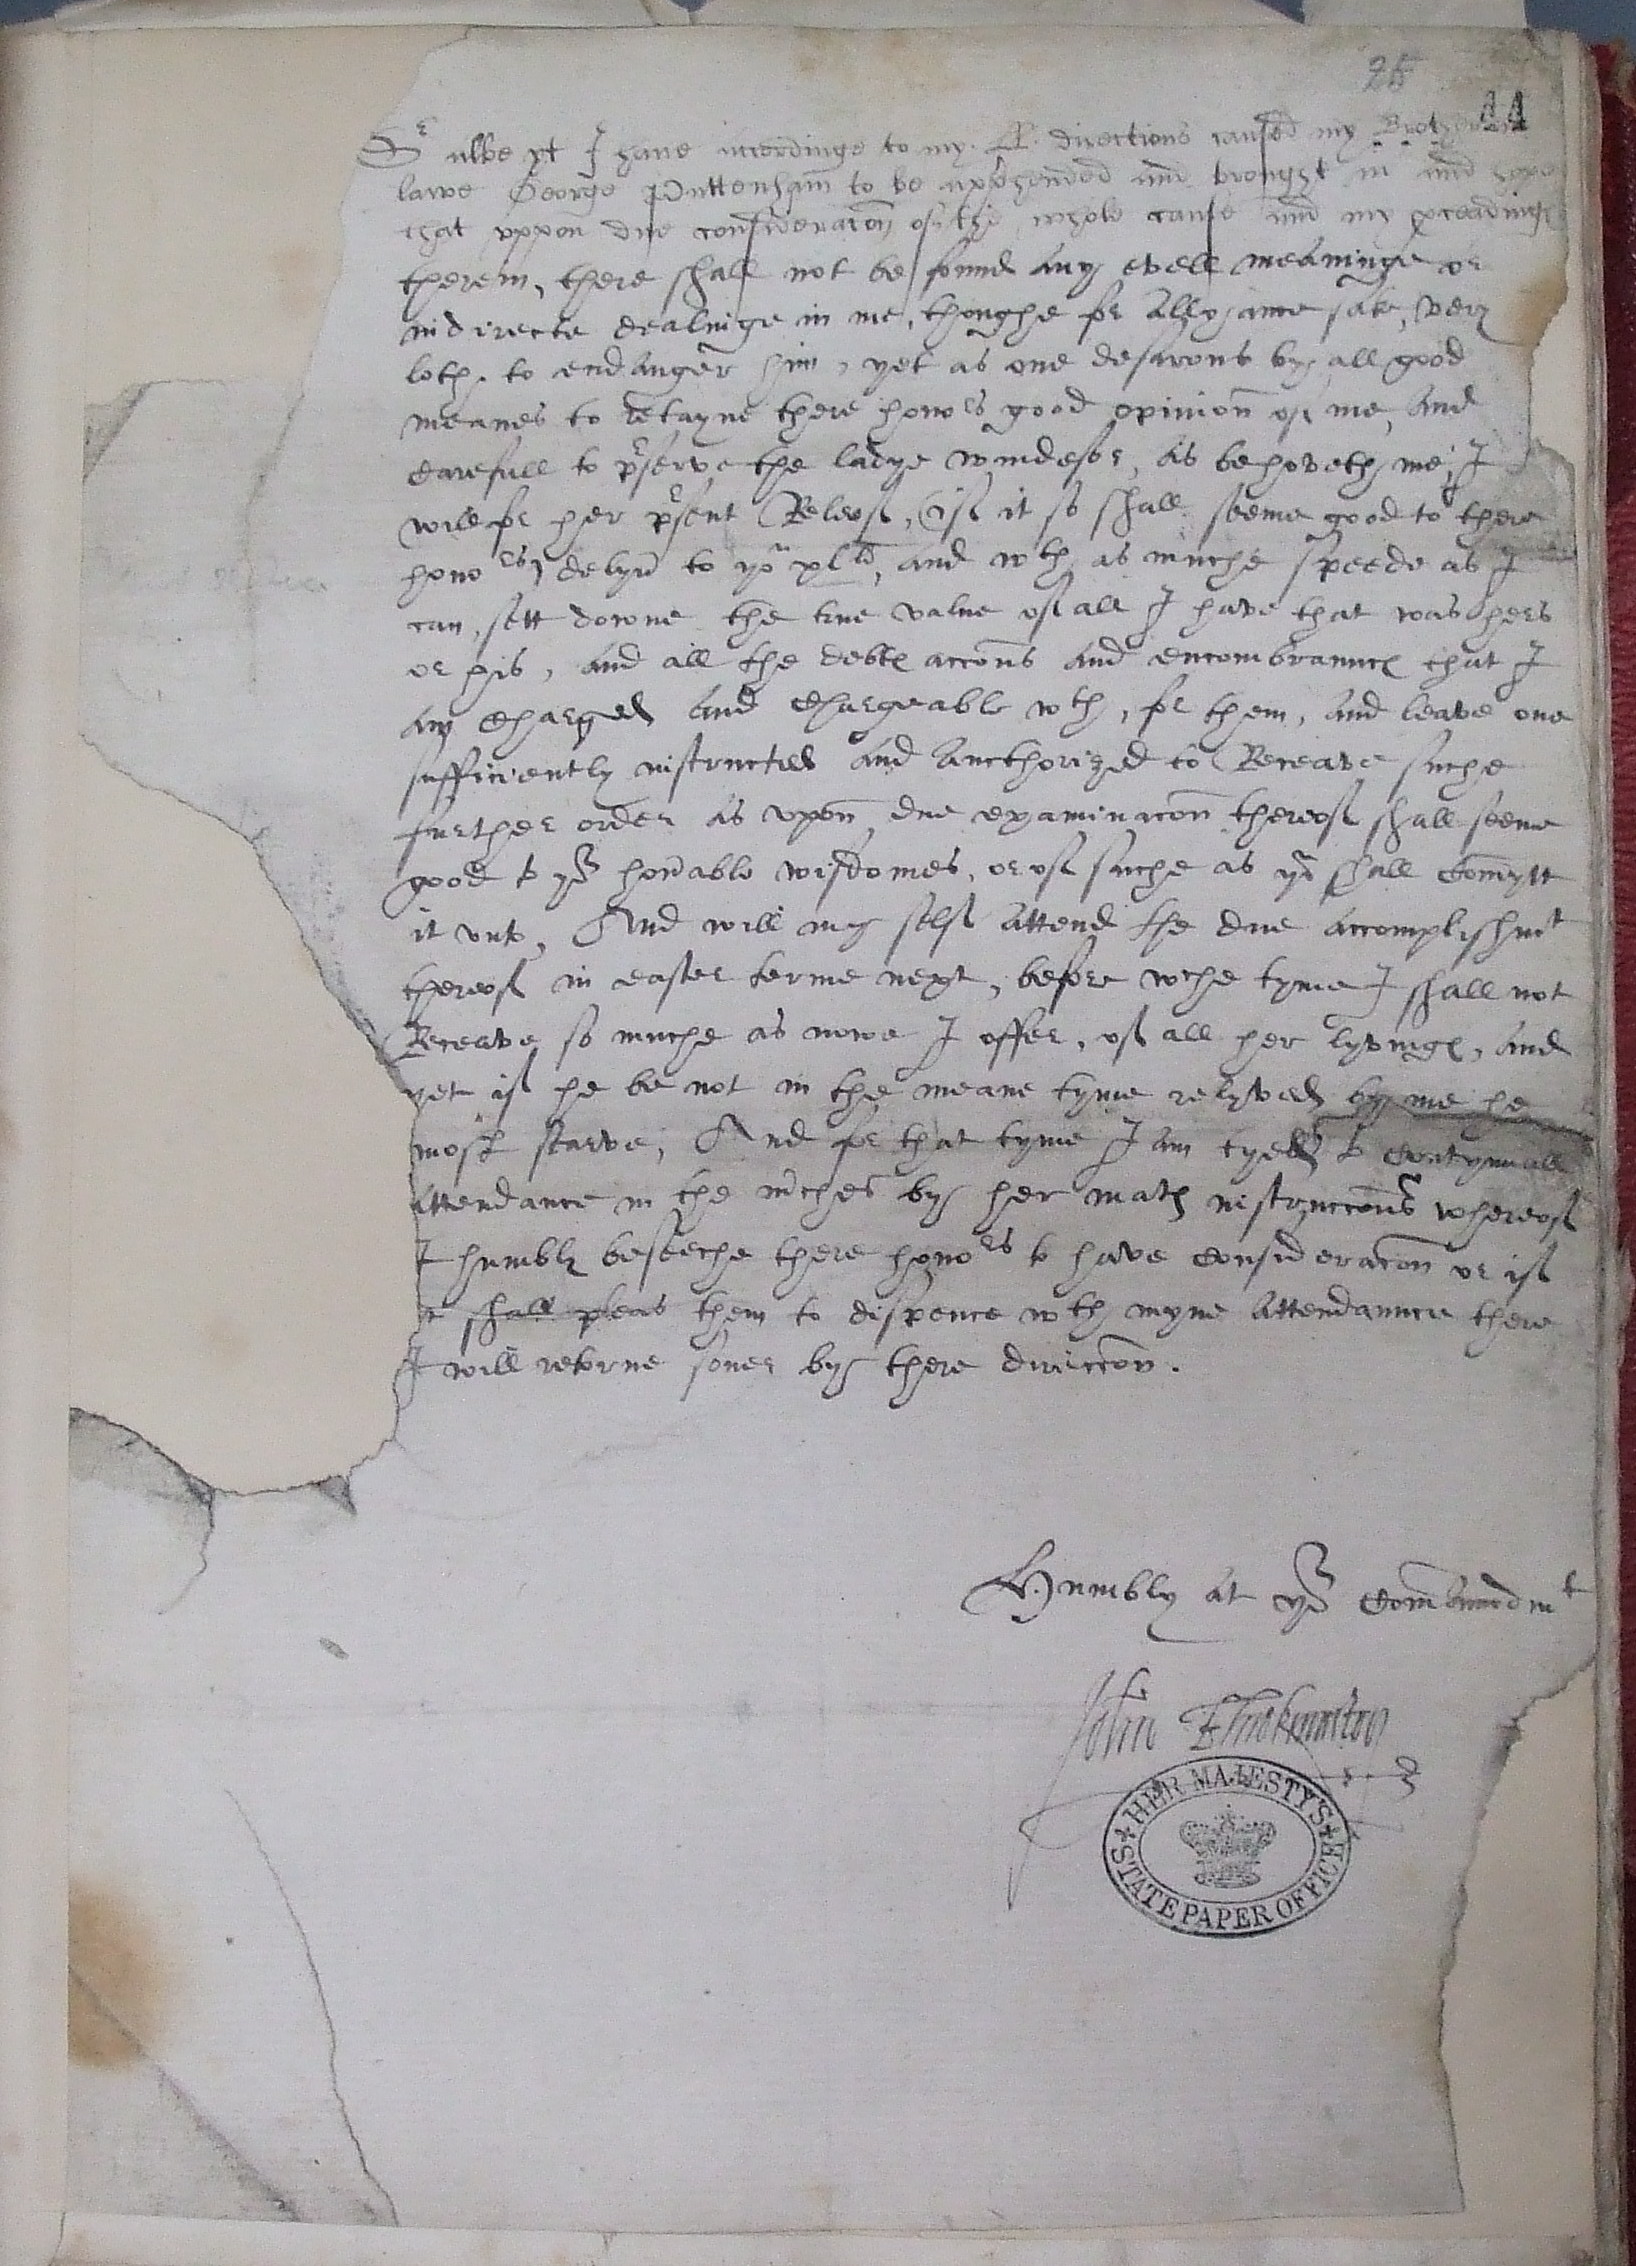 25
44
Sr albe yt I have accordinge to my. LL. directions caused my Brother in
lawe George Puttenham to be apprhended and brought in and hope
that uppon due consideracon of the whole cause and my proceadings
therein, there shall not be found any evell meaninge or
indirecte dealinge in me, thoughe for allyance sake, very
loth. to endanger him, yet as one desirous by all good
meanes to retayne there honors good opinion of me, and
carefull to prserve the ladye windesor, as behoveth me, I
will for her prsent Releef, (if it so shall seeme good to there
honors) delyvr to yor, and wth as muche speede as I
can, sett downe the true value of all I have that was hers
or his, and all the debtes accons and encombrannces that I
am charged and chargeable wth, for them, and leave one
sufficiently instructed and aucthorized to Receave suche
further order as upon due examinacon thereof shall seeme
good to yor honrable wisdomes, or of suche as yow shall comytt
it unto, And will my self attend the due accomplishmt
thereof in easter terme next, before wche tyme I shall not
Receave so muche as nowe I offer, of all her lyvinges, and
yet if he be not in the meane tyme relyved by me he
most starve, And for that tyme I am tyed to contynuall
attendance in the mrches by her maties instruccons whereof
I humbly beseeche there honors to have consideracon or if
it shall pleas them to dispence wth myne attendannce there
I will retorne soner by there direccon.
Humbly at yor Comaundmt
John Throkmorton
HER MAJESTY'S
STATE PAPER OFFICE